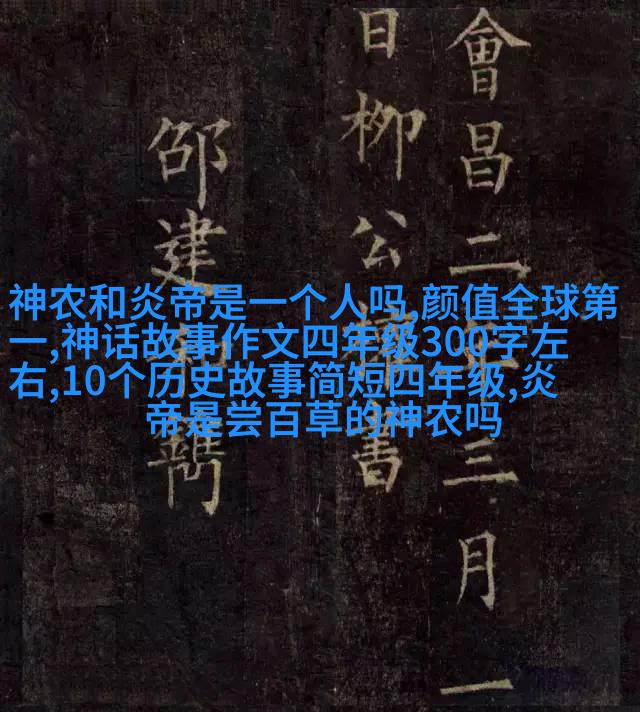 會昌二年三月一
日柳公權書
邵建和鐫
神农和炎帝是一个人吗,颜值全球第
一,神话故事作文四年级300字左
右,10个历史故事简短四年级,炎
帝是尝百草的神农吗